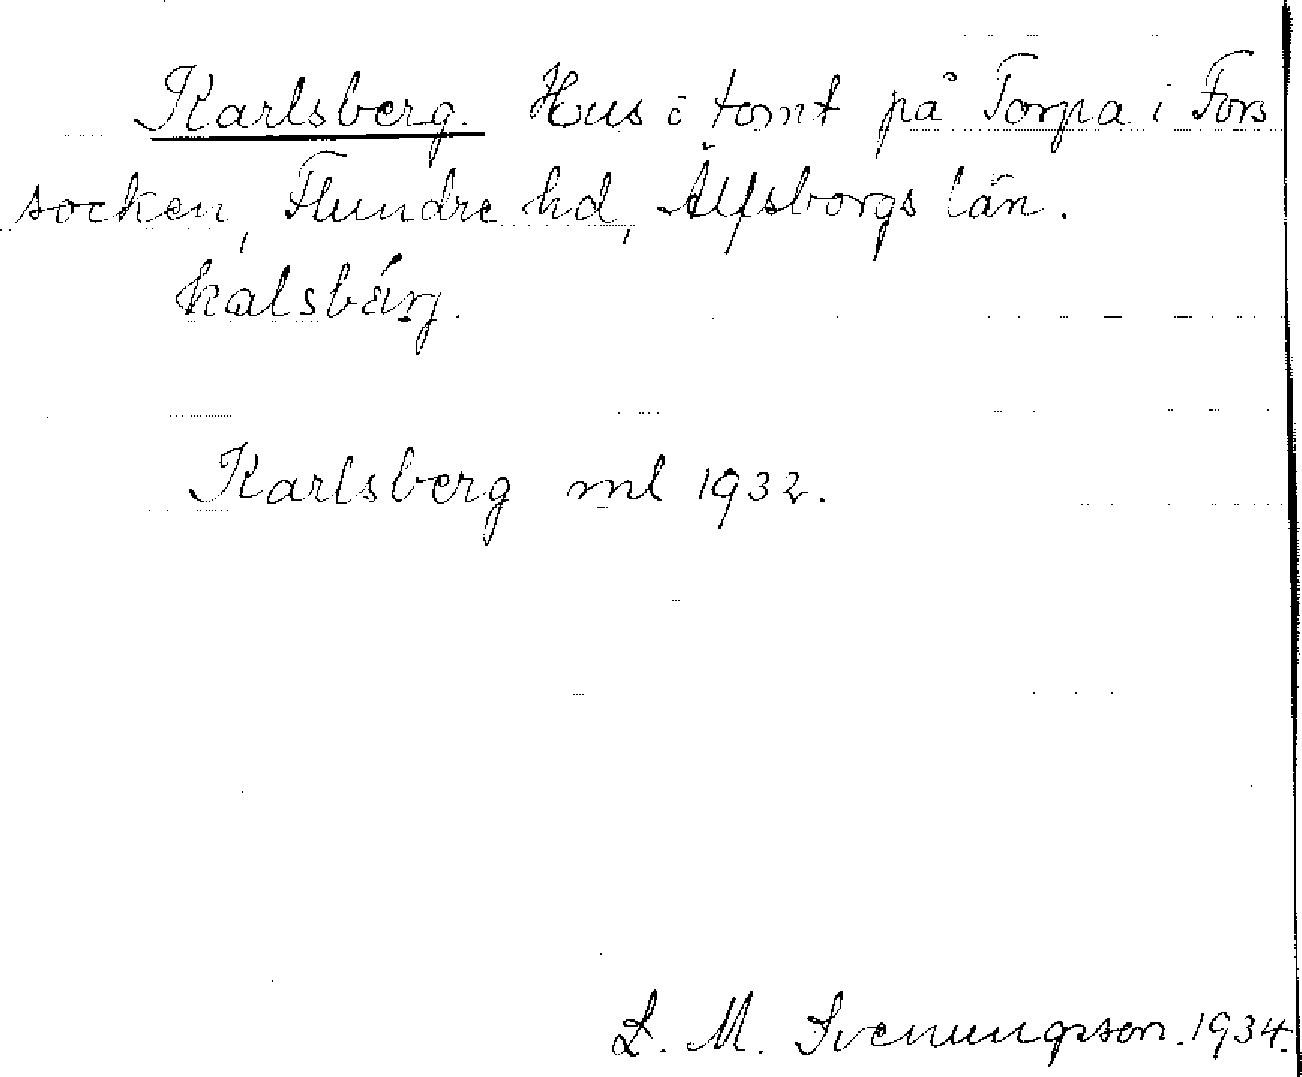 Karlsberg. Hus i tomt på Torpa i Fors
socken, Flundre hd, Älfsborgs län.
kalsbárj.
Karlsberg ml 1932.
L. M. Svenungsson. 1934.